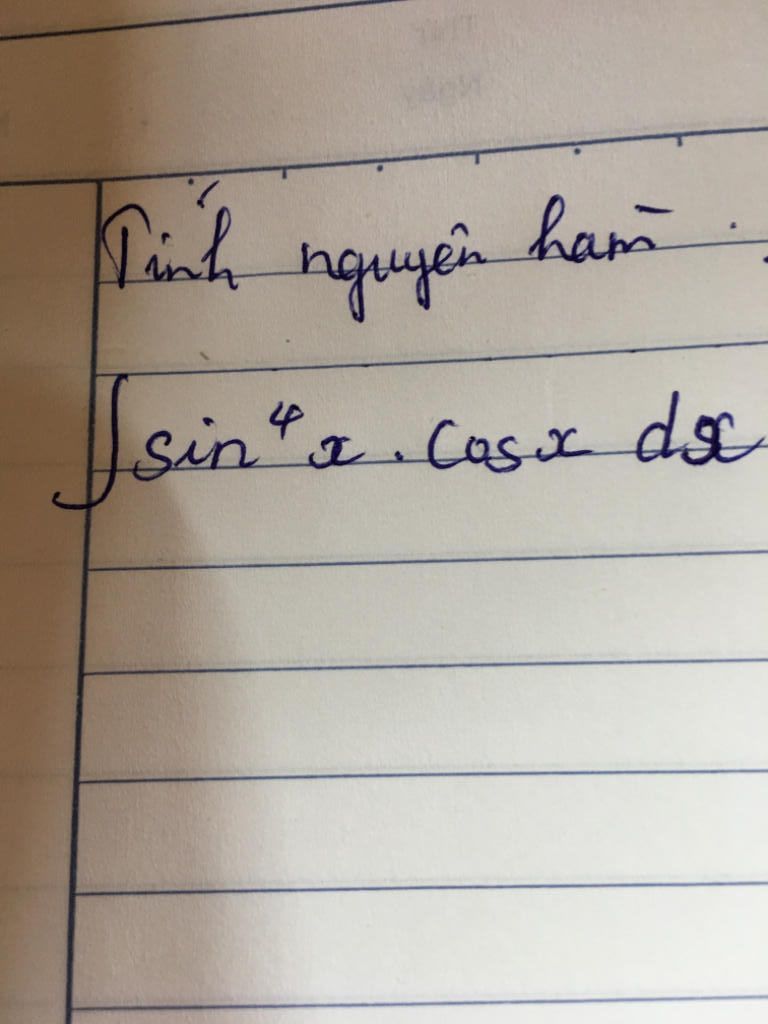 Tính nguyên hàm :
∫ sin⁴x . cosx dx